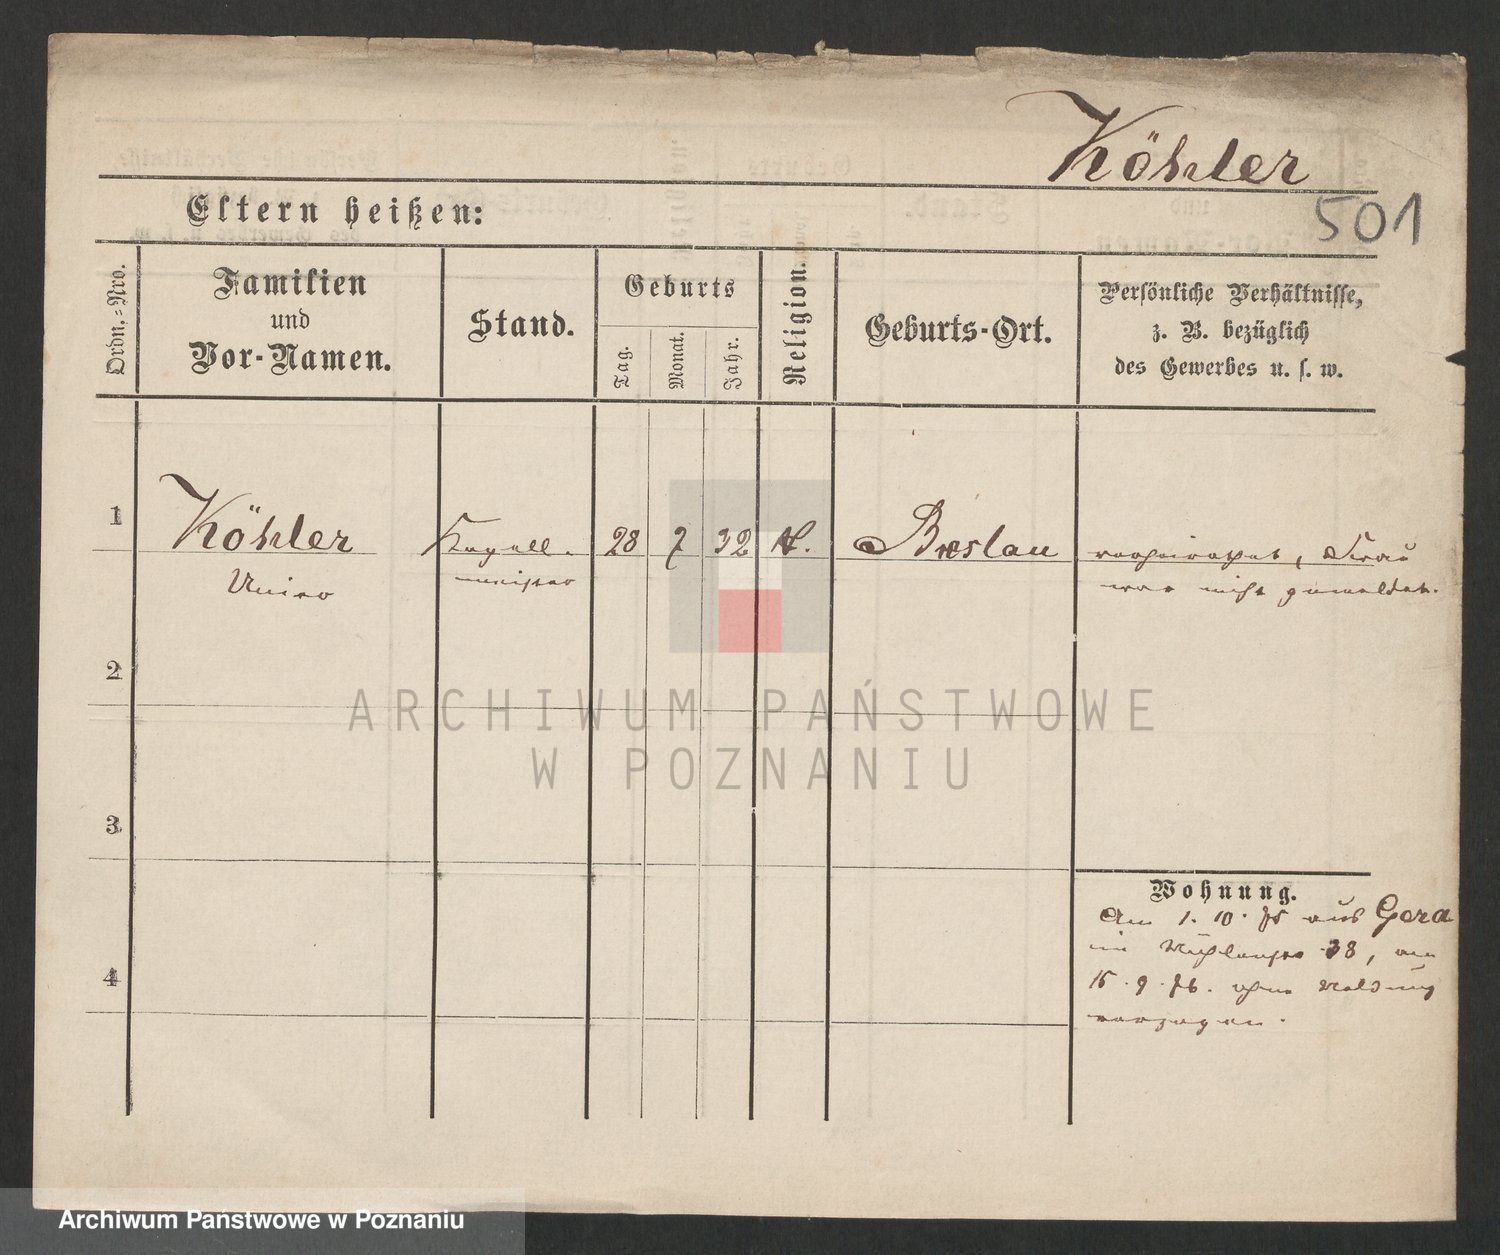 Köhler
501
Eltern heißen:
Ordn.=Nro.
Familien
und
Vor-Namen.
Stand.
Geburts
Tag.
Monat.
Jahr.
Religion.
Geburts-Ort.
Persönliche Verhältnisse,
z. B. bezüglich
des Gewerbes u. s. w.
1
Köhler
Kapell-
meister
28
7
32
K.
Breslau
verheirathet, Frau
war nicht gemeldet.
2
ARCHIWUM PAŃSTWOWE
W POZNANIU
3
Wohnung.
Am 1. 10. 75 aus Gera
in Mühlenstr 38, am
15. 9. 76. ohne Meldung
verzogen.
4
Archiwum Państwowe w Poznaniu